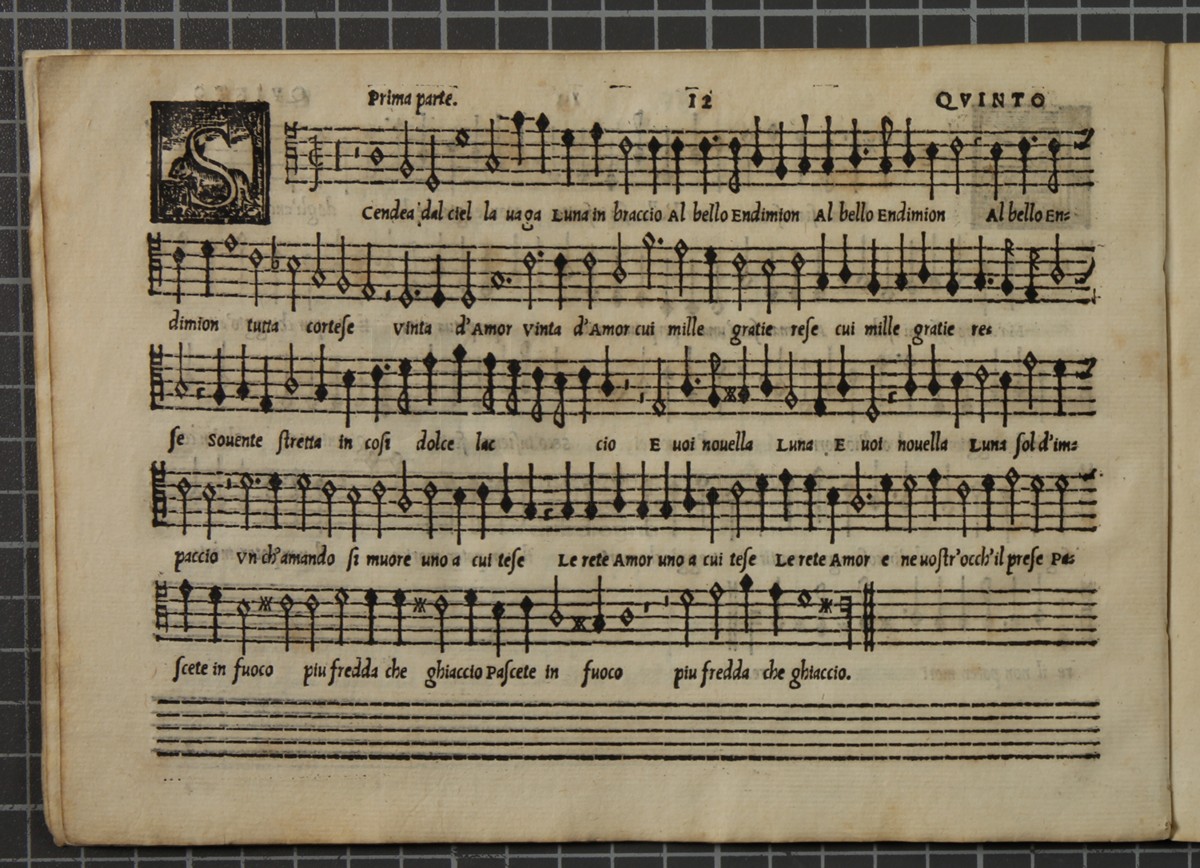 Prima parte. 12 QVINTO
SCendea dal ciel la uaga Luna in braccio Al bello Endimion Al bello Endimion Al bello En=
dimion tutta cortese Vinta d'Amor Vinta d'Amor cui mille gratie rese cui mille gratie re=
se Souente stretta in cosi dolce lac cio E uoi nouella Luna E uoi nouella Luna sol d'im=
paccio Vn ch'amando si muore uno a cui tese Le rete Amor uno a cui tese Le rete Amor e ne uostr'occh'il prese Pa=
scete in fuoco piu fredda che ghiaccio Pascete in fuoco piu fredda che ghiaccio.